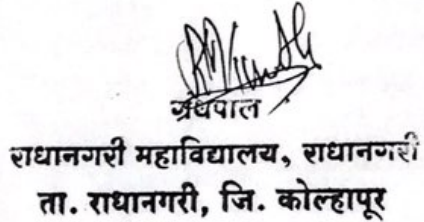 ग्रंथपाल
राधानगरी महाविद्यालय, राधानगरी
ता. राधानगरी, जि. कोल्हापूर